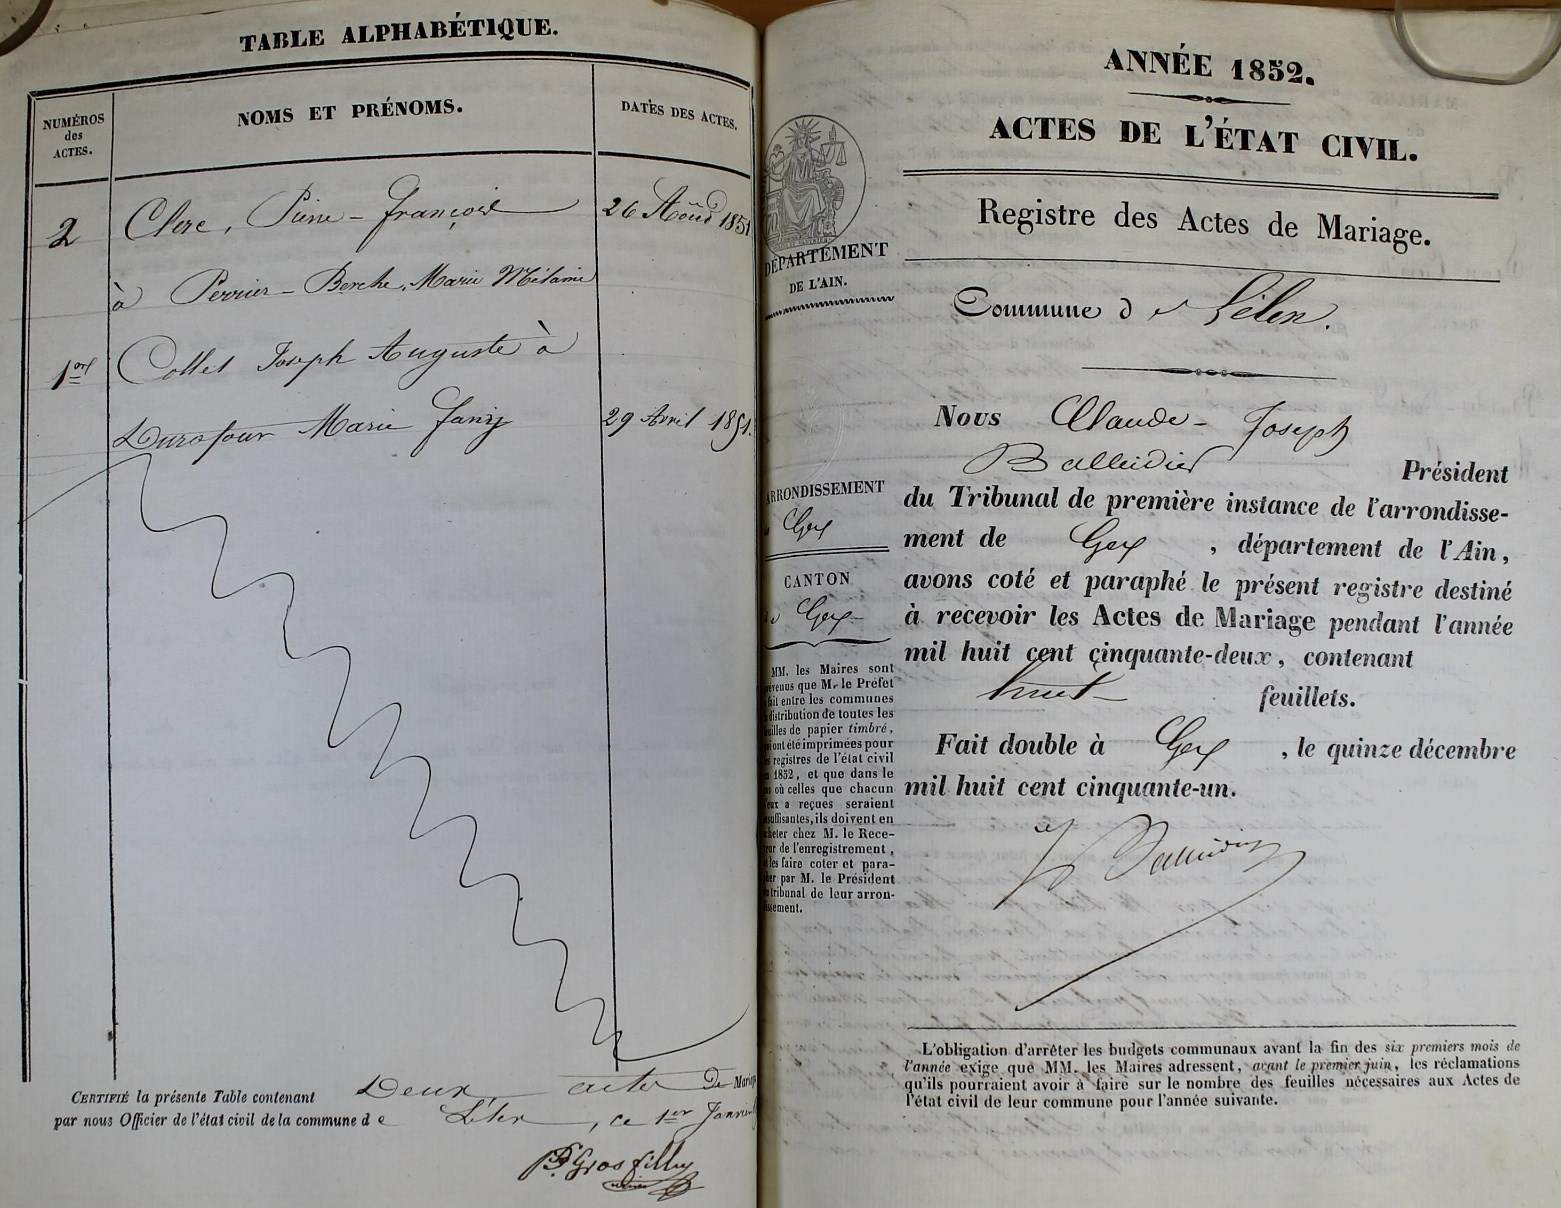 TABLE ALPHABÉTIQUE.
NUMÉROS
des
ACTES.
NOMS ET PRÉNOMS.
DATES DES ACTES.
2 Clerc, Pierre-François 26 Août 1851
à Perrier-Berche, Marie Mélanie
1er Collet Joseph Auguste à
Durafour Marie Fany 29 Avril 1851.
CERTIFIÉ la présente Table contenant Deux actes De Mariage
par nous Officier de l'état civil de la commune de Lélex, ce 1er Janvier
Grosfilley
ANNÉE 1852.
ACTES DE L'ÉTAT CIVIL.
Registre des Actes de Mariage.
DÉPARTEMENT
DE L'AIN.
Commune de Lélex.
ARRONDISSEMENT
Gex
CANTON
de Gex
MM. les Maires sont
prévenus que M. le Préfet
fait entre les communes
distribution de toutes les
feuilles de papier timbré,
qui ont été imprimées pour
les registres de l'état civil
en 1852, et que dans le
cas où celles que chacun
d'eux a reçues seraient
insuffisantes, ils doivent en
acheter chez M. le Rece-
veur de l'enregistrement,
et les faire coter et para-
pher par M. le Président
du tribunal de leur arron-
dissement.
Nous Claude-Joseph
Balleidier Président
du Tribunal de première instance de l'arrondisse-
ment de Gex, département de l'Ain,
avons coté et paraphé le présent registre destiné
à recevoir les Actes de Mariage pendant l'année
mil huit cent cinquante-deux, contenant
huit feuillets.
Fait double à Gex, le quinze décembre
mil huit cent cinquante-un.
Balleidier
L'obligation d'arrêter les budgets communaux avant la fin des six premiers mois de
l'année exige que MM. les Maires adressent, avant le premier juin, les réclamations
qu'ils pourraient avoir à faire sur le nombre des feuilles nécessaires aux Actes de
l'état civil de leur commune pour l'année suivante.